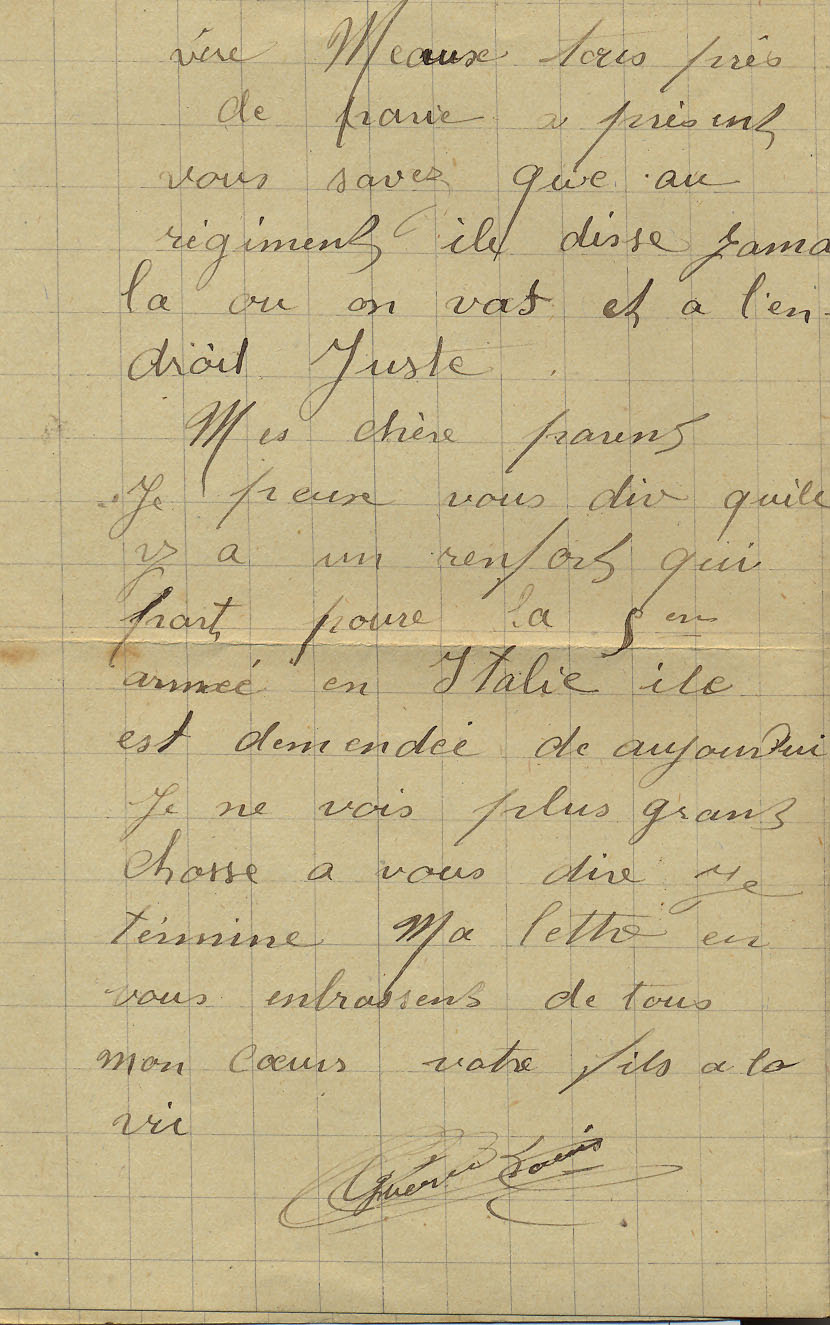 vère Meaux tous près
de parie a présent
vous savez que au
régiment ile disse jama
la ou on vat et a l'en-
droit Juste
Mes chère parent
Je peuxe vous dire quile
y a un renfort qui
part poure la 5 em
armeé en Italie ile
est demendée de aujourdui
Je ne vois plus grant
Chosse a vous dire Je
términe Ma lettre en
vous enbrassent de tous
mon Cœurs votre fils a la
vie
Louis